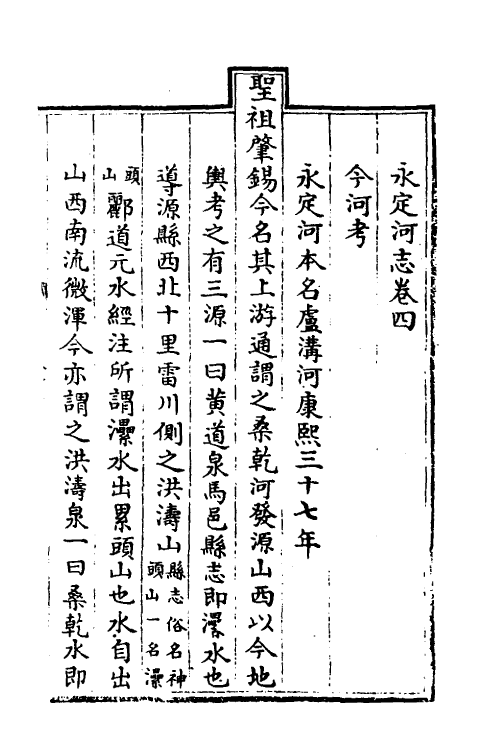 永定河志卷四
今河考
永定河本名盧溝河康熙三十七年
聖祖肇錫今名其上游通謂之桑乾河發源山西以今地
輿考之有三源一曰黄道泉馬邑縣志即灅水也
導源縣西北十里雷川側之洪濤山縣志俗名神頭山一名漯
頭山酈道元水經注所謂灅水出累頭山也水自出
山西南流微渾今亦謂之洪濤泉一曰桑乾水即